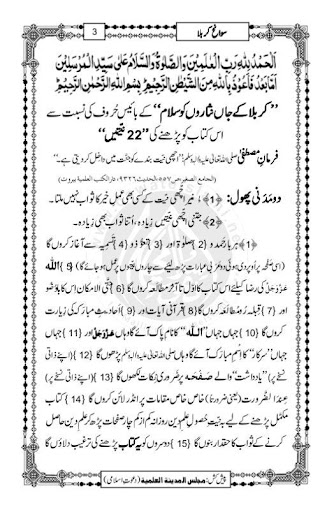 سوانحِ کربلا 3
اَلْحَمْدُ لِلّٰہِ رَبِّ الْعٰلَمِیْنَ وَالصَّلٰوۃُ وَالسَّلَامُ عَلٰی سَیِّدِ الْمُرْسَلِیْنَ
اَمَّا بَعْدُ فَاَعُوْذُ بِاللّٰہِ مِنَ الشَّیْطٰنِ الرَّجِیْمِ ؕ بِسْمِ اللّٰہِ الرَّحْمٰنِ الرَّحِیْمِ ؕ
”کربلا کے جاں نثاروں کو سلام“ کے بائیس حُروف کی نسبت سے
اس کتاب کو پڑھنے کی ”22 نیّتیں“
فرمانِ مصطفٰی صلی اللہ تعالٰی علیہ والہ وسلم: اچھی نیت بندے کو جنت میں داخل کر دیتی ہے۔
(الجامع الصغیر، ص۵۵۷، الحدیث ۹۳۲۶، دار الکتب العلمیۃ بیروت)
دو مَدَنی پھول: ﴿1﴾ بغیر اچھی نیت کے کسی بھی عملِ خیر کا ثواب نہیں ملتا۔
﴿2﴾ جتنی اچھی نیتیں زیادہ، اُتنا ثواب بھی زیادہ۔
﴿1﴾ ہر بار حمد و {2} صلوٰۃ اور {3} تعوُّذ و {4} تسمیہ سے آغاز کروں گا
(اسی صفحہ پر اُوپر دی ہوئی دو عربی عبارات پڑھ لینے سے چاروں نیتوں پر عمل ہو جائے گا) {5} اللہ
عزوجل کی رضا کیلئے اس کتاب کا اوّل تا آخر مطالعہ کروں گا {6} حتَّی الامکان اس کا باوُضو
اور {7} قبلہ رُو مطالعہ کروں گا {8} قرآنی آیات اور {9} احادیثِ مبارکہ کی زیارت
کروں گا {10} جہاں جہاں ”اللہ“ کا نامِ پاک آئے گا وہاں عزوجل اور {11} جہاں
جہاں ”سرکار“ کا اسمِ مبارک آئے گا وہاں صلی اللہ تعالٰی علیہ والہ وسلم پڑھوں گا {12} (اپنے ذاتی
نسخے پر) ”یادداشت“ والے صفحہ پر ضَروری نکات لکھوں گا {13} (اپنے ذاتی نسخے پر)
عند الضرورت (یعنی ضرورتاً) خاص خاص مقامات پر انڈر لائن کروں گا {14} کتاب
مکمّل پڑھنے کے لیے بہ نیتِ حصولِ علمِ دین روزانہ کم از کم چار صفحات پڑھ کر علمِ دین حاصل
کرنے کے ثواب کا حقدار بنوں گا {15} دوسروں کو یہ کتاب پڑھنے کی ترغیب دلاؤں گا
پیش کش: مجلس المدینۃ العلمیۃ (دعوتِ اسلامی)